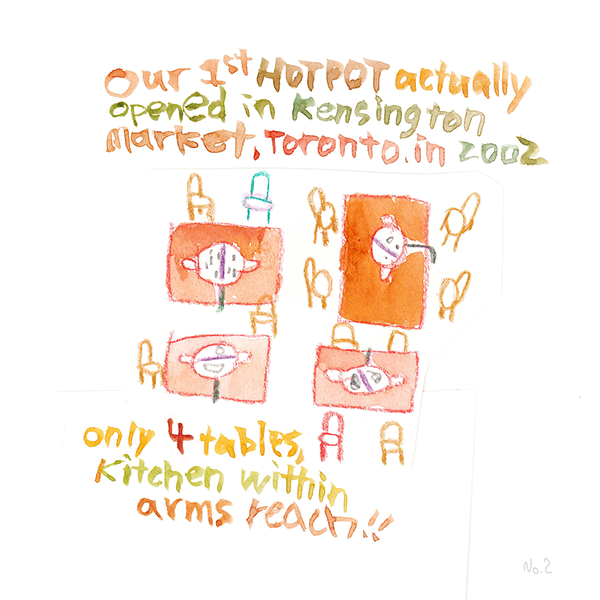 Our 1st HOTPOT actually
opened in Kensington
Market, Toronto. in 2002
only 4 tables,
Kitchen within
arms reach!!
No.2